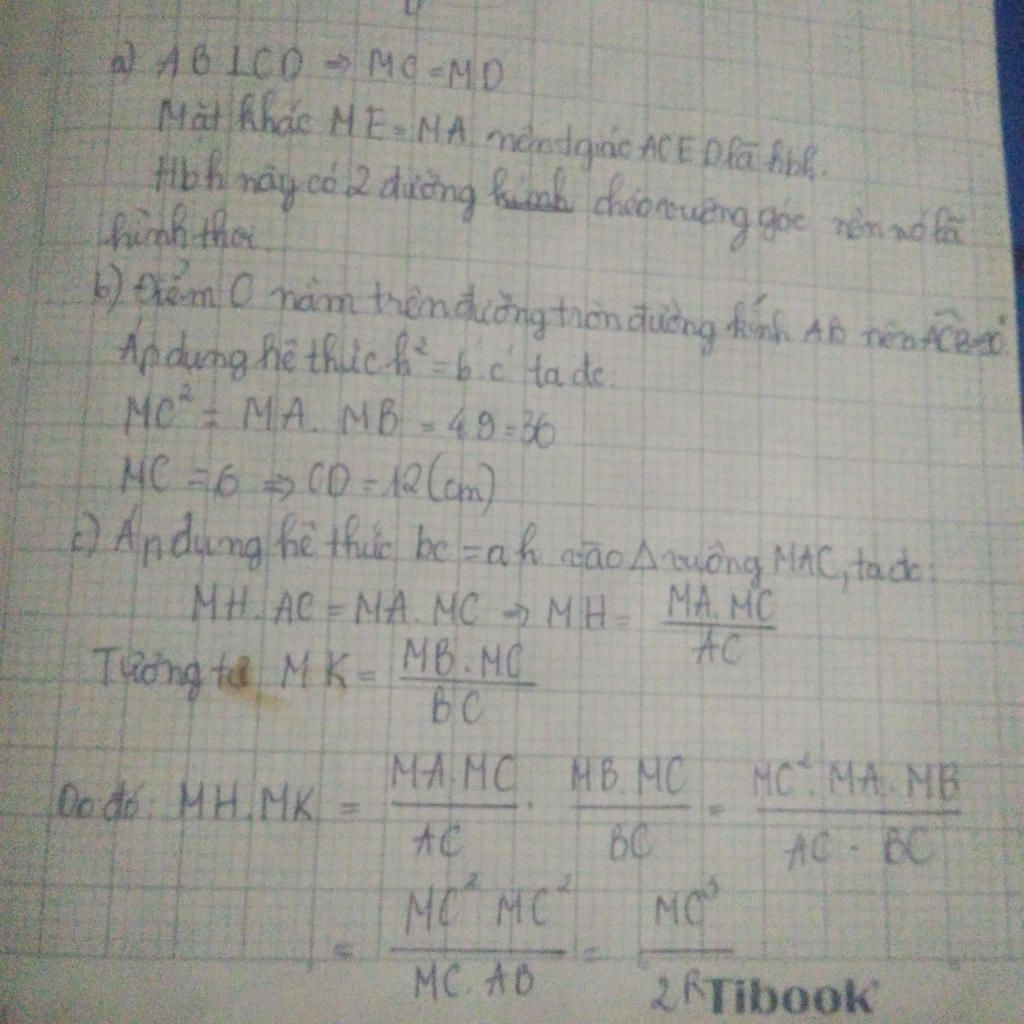 a) AB ⊥ CD ⇒ MC = MD
Mặt khác ME = MA nên tgiác ACED là hbh.
Hbh này có 2 đường chéo vuông góc nên nó là
hình thoi.
b) Điểm C nằm trên đường tròn đường kính AB nên ACB = 90°
Áp dụng hệ thức h² = b'.c' ta đc:
MC² = MA. MB = 4.9 = 36
MC = 6 ⇒ CD = 12 (cm)
c) Áp dụng hệ thức bc = ah vào Δ vuông MAC, ta đc:
MH. AC = MA. MC ⇒ MH = MA. MC / AC
Tương tự MK = MB. MC / BC
Do đó: MH. MK = MA. MC / AC . MB. MC / BC = MC². MA. MB / AC . BC
= MC² MC² / MC. AB = MC³ / 2R
Tibook